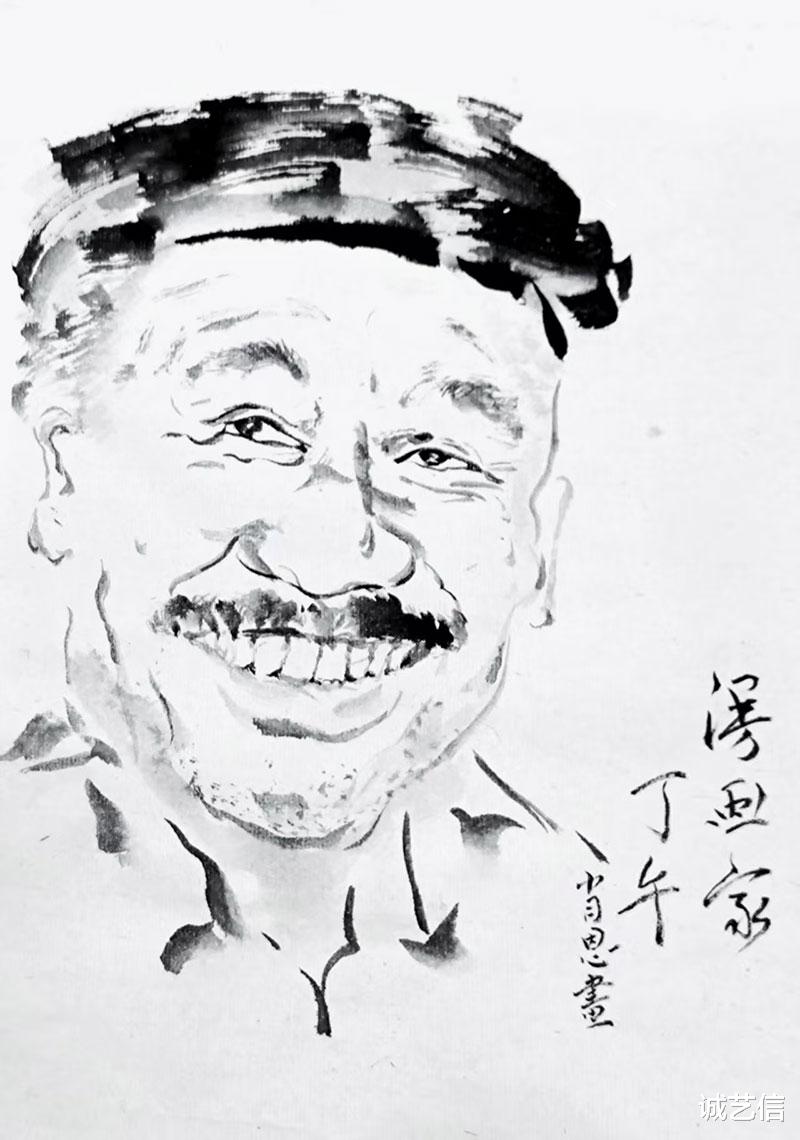 漫画家
丁午
肖思畫
诚艺信